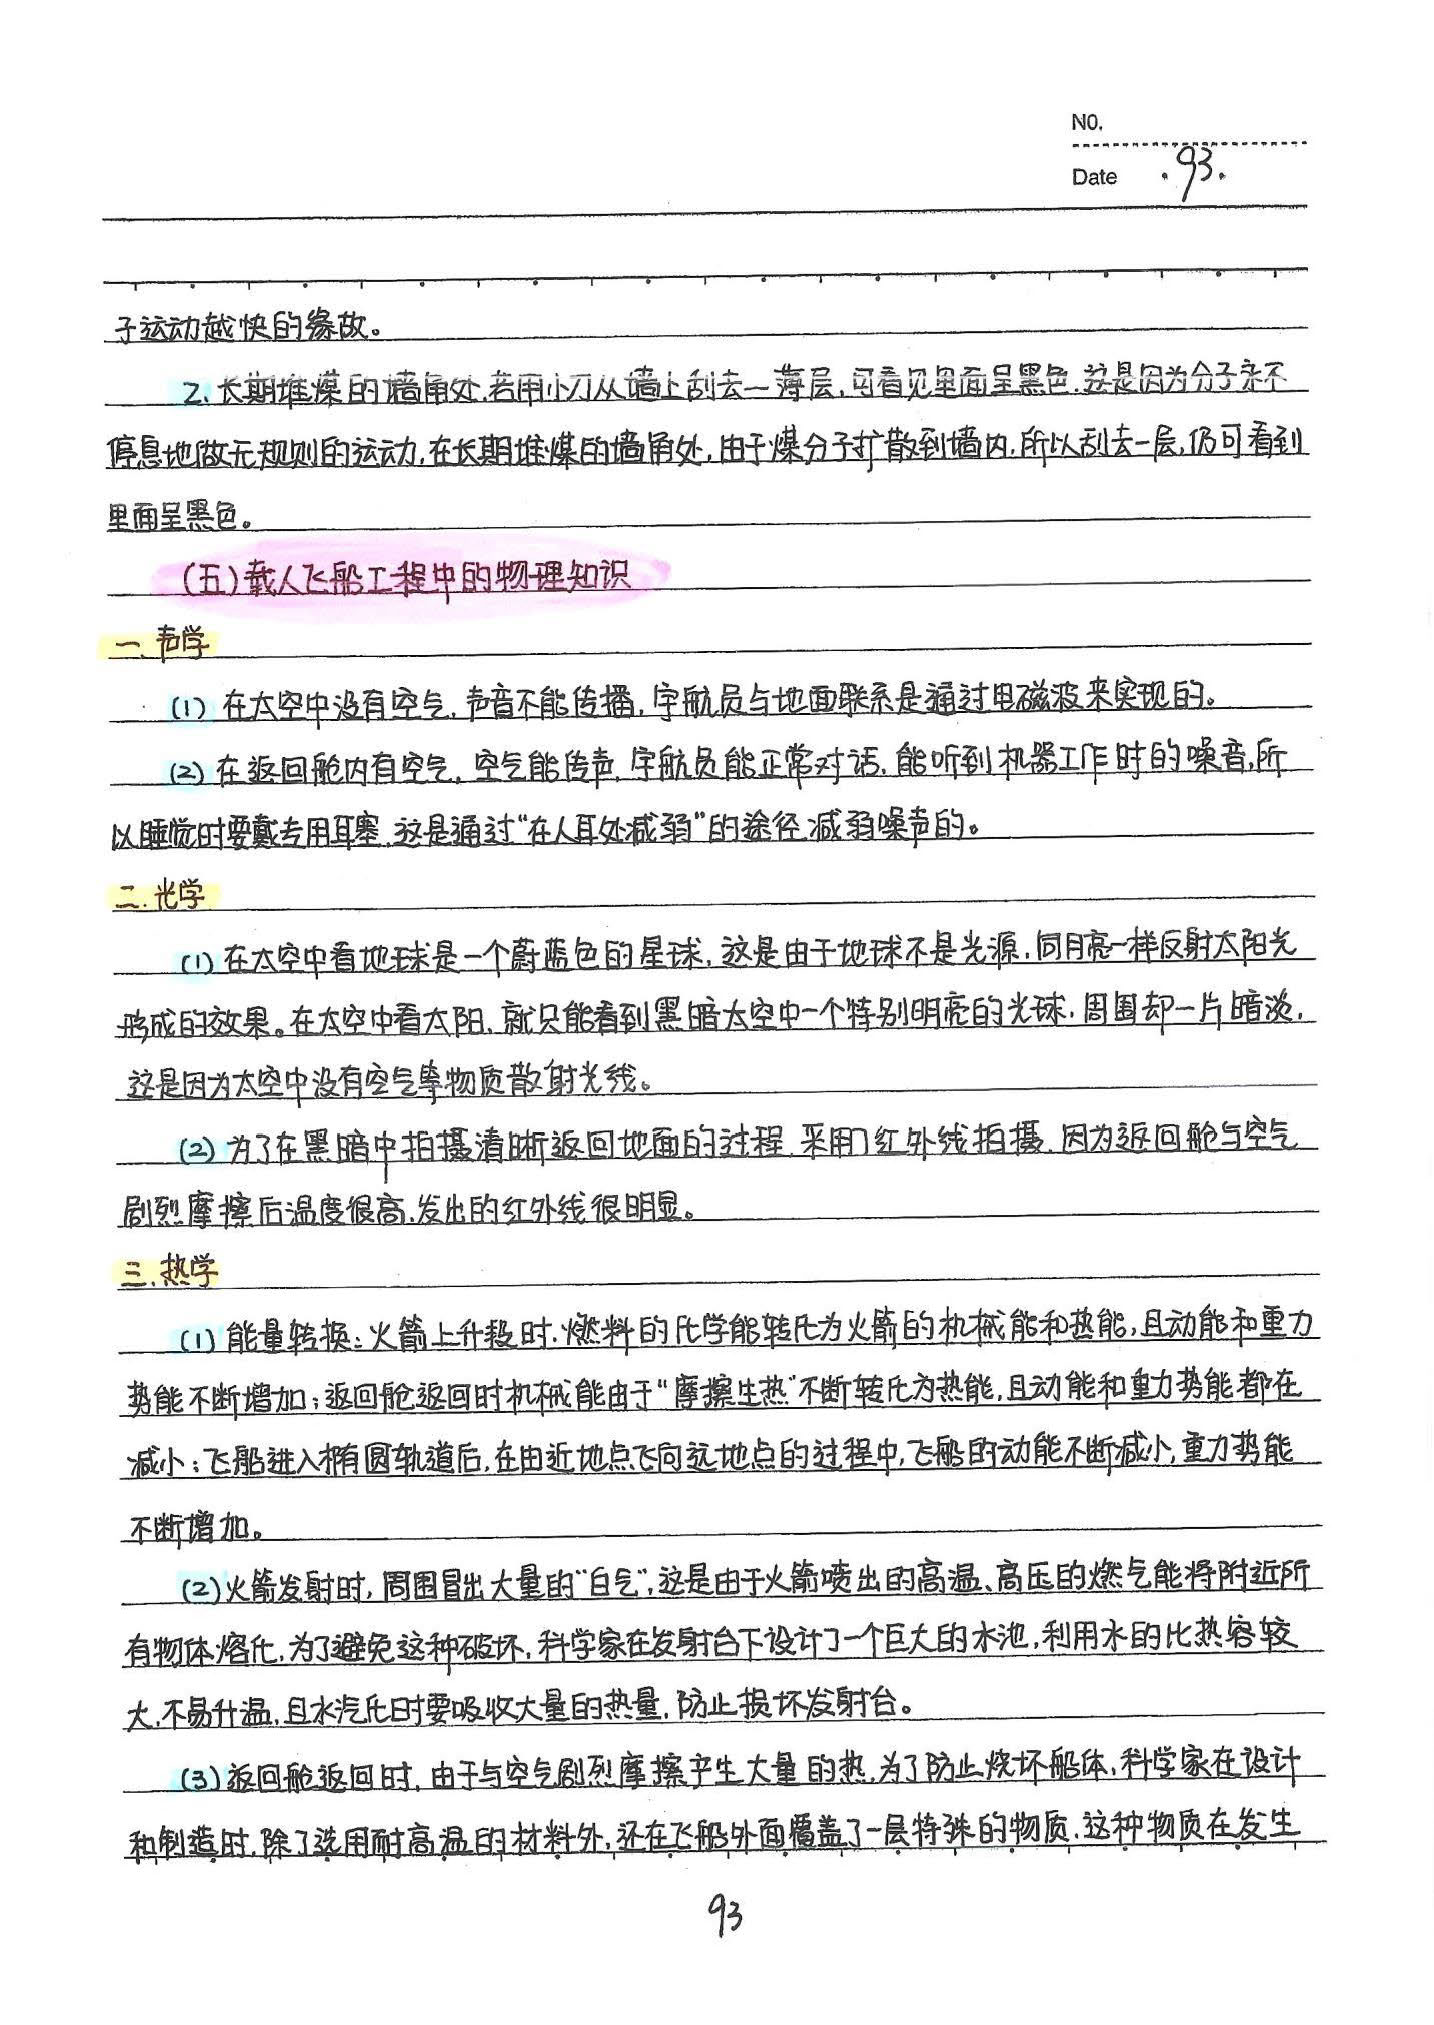 NO.
Date .93.
子运动越快的缘故。
2. 长期堆煤的墙角处,若用小刀从墙上刮去一薄层,可看见里面呈黑色.这是因为分子永不
停息地做无规则的运动,在长期堆煤的墙角处,由于煤分子扩散到墙内,所以刮去一层,仍可看到
里面呈黑色。
(五)载人飞船工程中的物理知识
一.声学
(1) 在太空中没有空气,声音不能传播,宇航员与地面联系是通过电磁波来实现的。
(2) 在返回舱内有空气,空气能传声,宇航员能正常对话,能听到机器工作时的噪音,所
以睡觉时要戴专用耳塞,这是通过“在人耳处减弱”的途径减弱噪声的。
二.光学
(1) 在太空中看地球是一个蔚蓝色的星球,这是由于地球不是光源,同月亮一样反射太阳光
形成的效果。在太空中看太阳,就只能看到黑暗太空中一个特别明亮的光球,周围却一片暗淡,
这是因为太空中没有空气等物质散射光线。
(2) 为了在黑暗中拍摄清晰返回地面的过程,采用了红外线拍摄,因为返回舱与空气
剧烈摩擦后温度很高,发出的红外线很明显。
三.热学
(1) 能量转换:火箭上升段时,燃料的化学能转化为火箭的机械能和热能,且动能和重力
势能不断增加;返回舱返回时机械能由于“摩擦生热”不断转化为热能,且动能和重力势能都在
减小;飞船进入椭圆轨道后,在由近地点飞向远地点的过程中,飞船的动能不断减小,重力势能
不断增加。
(2) 火箭发射时,周围冒出大量的“白气”,这是由于火箭喷出的高温、高压的燃气能将附近所
有物体熔化,为了避免这种破坏,科学家在发射台下设计了一个巨大的水池,利用水的比热容较
大,不易升温,且水汽化时要吸收大量的热量,防止损坏发射台。
(3) 返回舱返回时,由于与空气剧烈摩擦产生大量的热,为了防止烧坏船体,科学家在设计
和制造时,除了选用耐高温的材料外,还在飞船外面覆盖了一层特殊的物质,这种物质在发生
93